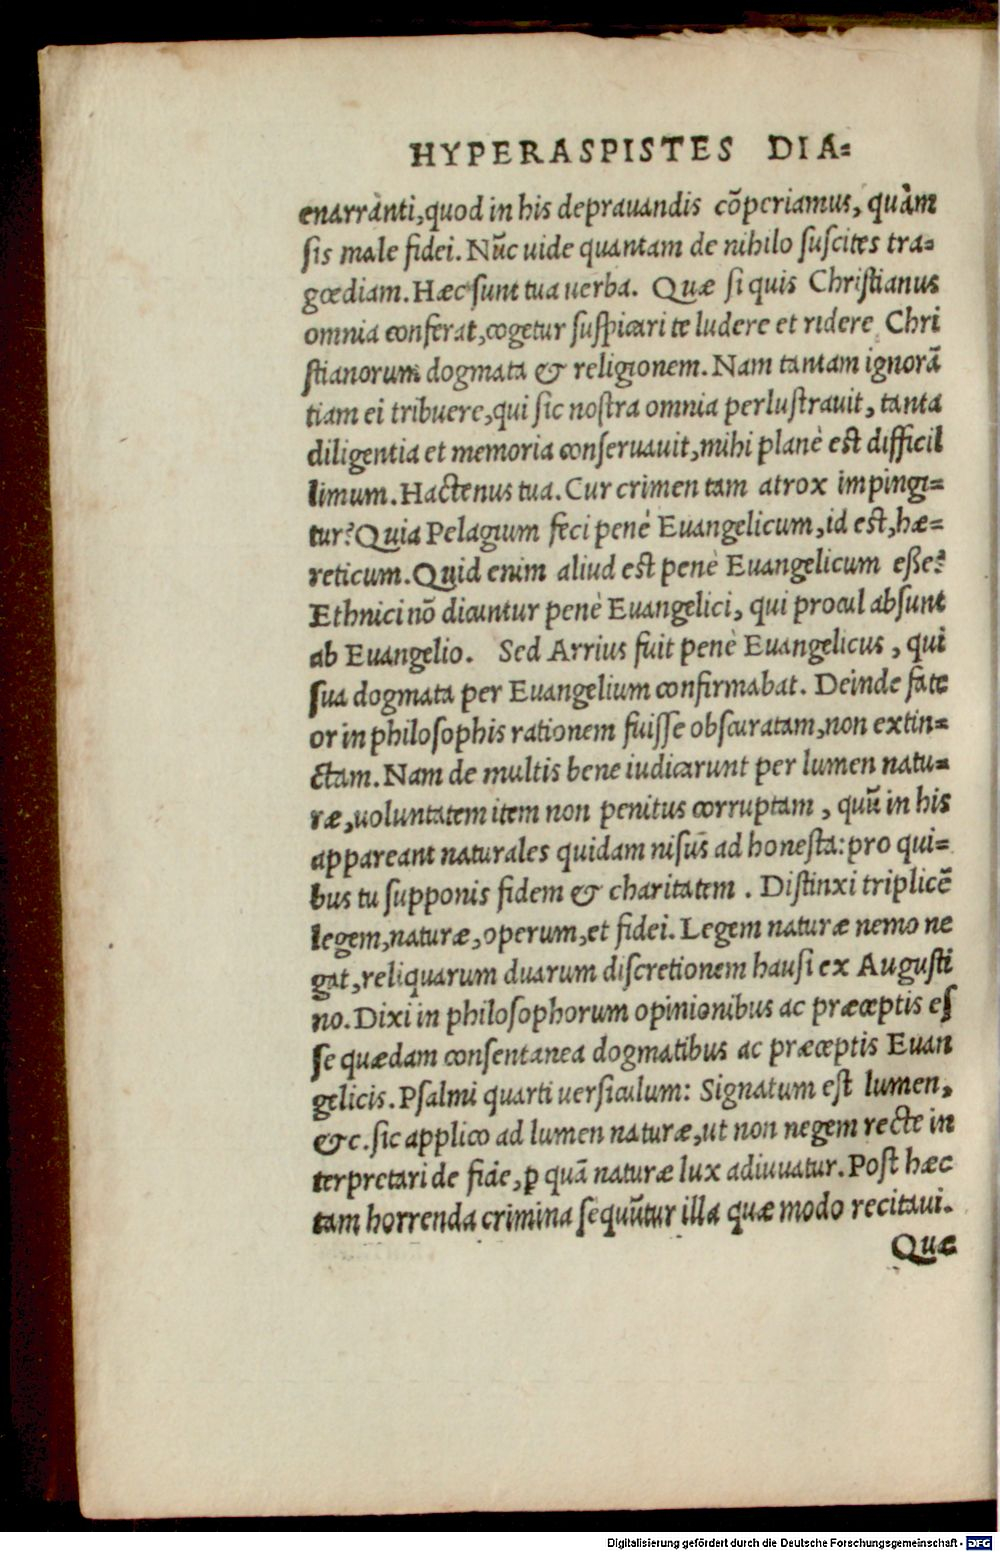 HYPERASPISTES DIA=
enarranti, quod in his deprauandis cõperiamus, quàm
sis male fidei. Nũc uide quantam de nihilo suscites tra=
gœdiam. Hæc sunt tua uerba. Quæ si quis Christianus
omnia conferat, cogetur suspicari te ludere et ridere Chri
stianorum dogmata & religionem. Nam tantam ignorã
tiam ei tribuere, qui sic nostra omnia perlustrauit, tanta
diligentia et memoria conseruauit, mihi planè est difficil
limum. Hactenus tua. Cur crimen tam atrox impingi=
tur? Quia Pelagium feci penè Euangelicum, id est, hæ=
reticum. Quid enim aliud est penè Euangelicum eße?
Ethnici nõ dicuntur penè Euangelici, qui procul absunt
ab Euangelio. Sed Arrius fuit penè Euangelicus, qui
sua dogmata per Euangelium confirmabat. Deinde fate
or in philosophis rationem fuisse obscuratam, non extin=
ctam. Nam de multis bene iudicarunt per lumen natu=
ræ, uoluntatem item non penitus corruptam, quũ in his
appareant naturales quidam nisus ad honesta: pro qui=
bus tu supponis fidem & charitatem. Distinxi triplicẽ
legem, naturæ, operum, et fidei. Legem naturæ nemo ne
gat, reliquarum duarum discretionem hausi ex Augusti
no. Dixi in philosophorum opinionibus ac præceptis es
se quædam consentanea dogmatibus ac præceptis Euan
gelicis. Psalmi quarti uersiculum: Signatum est lumen,
&c. sic applico ad lumen naturæ, ut non negem recte in
terpretari de fide, ꝑ quã naturæ lux adiuuatur. Post hæc
tam horrenda crimina sequũtur illa quæ modo recitaui.
Quæ
Digitalisierung gefördert durch die Deutsche Forschungsgemeinschaft - DFG